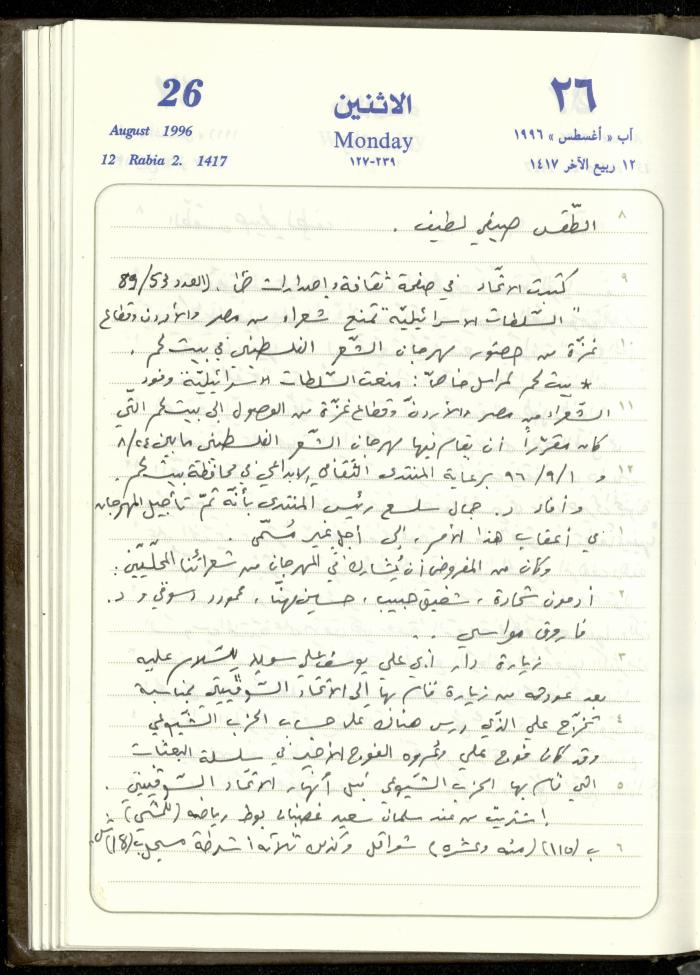 26
August 1996
12 Rabia 2. 1417
الاثنين
Monday
١٢٧-٢٣٩
٢٦
آب « أغسطس » ١٩٩٦
١٢ ربيع الآخر ١٤١٧
٨ الطّقس صيفي لطيف .
٩ كتبت الاتحاد في صفحة ثقافة وإصدارات (العدد 89/53
"السّلطات الاسرائيليّة" تمنع شعراء من مصر والأردن وقطاع
١٠ غزّة من حضور مهرجان الشّعر الفلسطيني في بيت لحم .
* بيت لحم لمراسل خاصّ : منعت السّلطات الاسرائيليّة وفود
١١ الشّعراء من مصر والأردنّ وقطاع غزّة من الوصول الى بيت لحم التّي
كان مقرّراً أن يقام فيها مهرجان الشّعر الفلسطيني ما بين ٨/٢٤
١٢ و ٩٦/٩/١ برعاية المنتدى الثّقافي الإبداعي في محافظة بيت لحم .
وأفاد د. جمال سلسع رئيس المنتدى بأنّه تمّ تأجيل المهرجان
١ في أعقاب هذا الأمر، إلى أجلٍ غير مُسمّى .
وكان من المفروض أن يُشارك في المهرجان من شعرائنا المحلّيّين :
٢ أدمون شحادة ، شفيق حبيب ، حسين مهنّا ، محمود دسوقي و د.
فاروق مواسي . .
٣ زيارة دار أبي علي يوسف علي سويد للسّلام عليه
بعد عودته من زيارة قام بها إلى الاتحاد السّوڤييتي بمناسبة
٤ تخرّج علي الذّي درس هناك على حساب الحزب الشّيوعي
وقد كان فوج علي وغيره الفوج الأخير في سلسلة البعثات
٥ التي قام بها الحزب الشّيوعي قبل انهيار الاتحاد السّوڤييتي .
اشتريت من عند سلمان سعيد غضبان بوط رياضة (للمشي)
٦ ب (١١٥) (مئة وعشرة) شواقل وكذلك ثلاثة أشرطة مسجل ب(18)